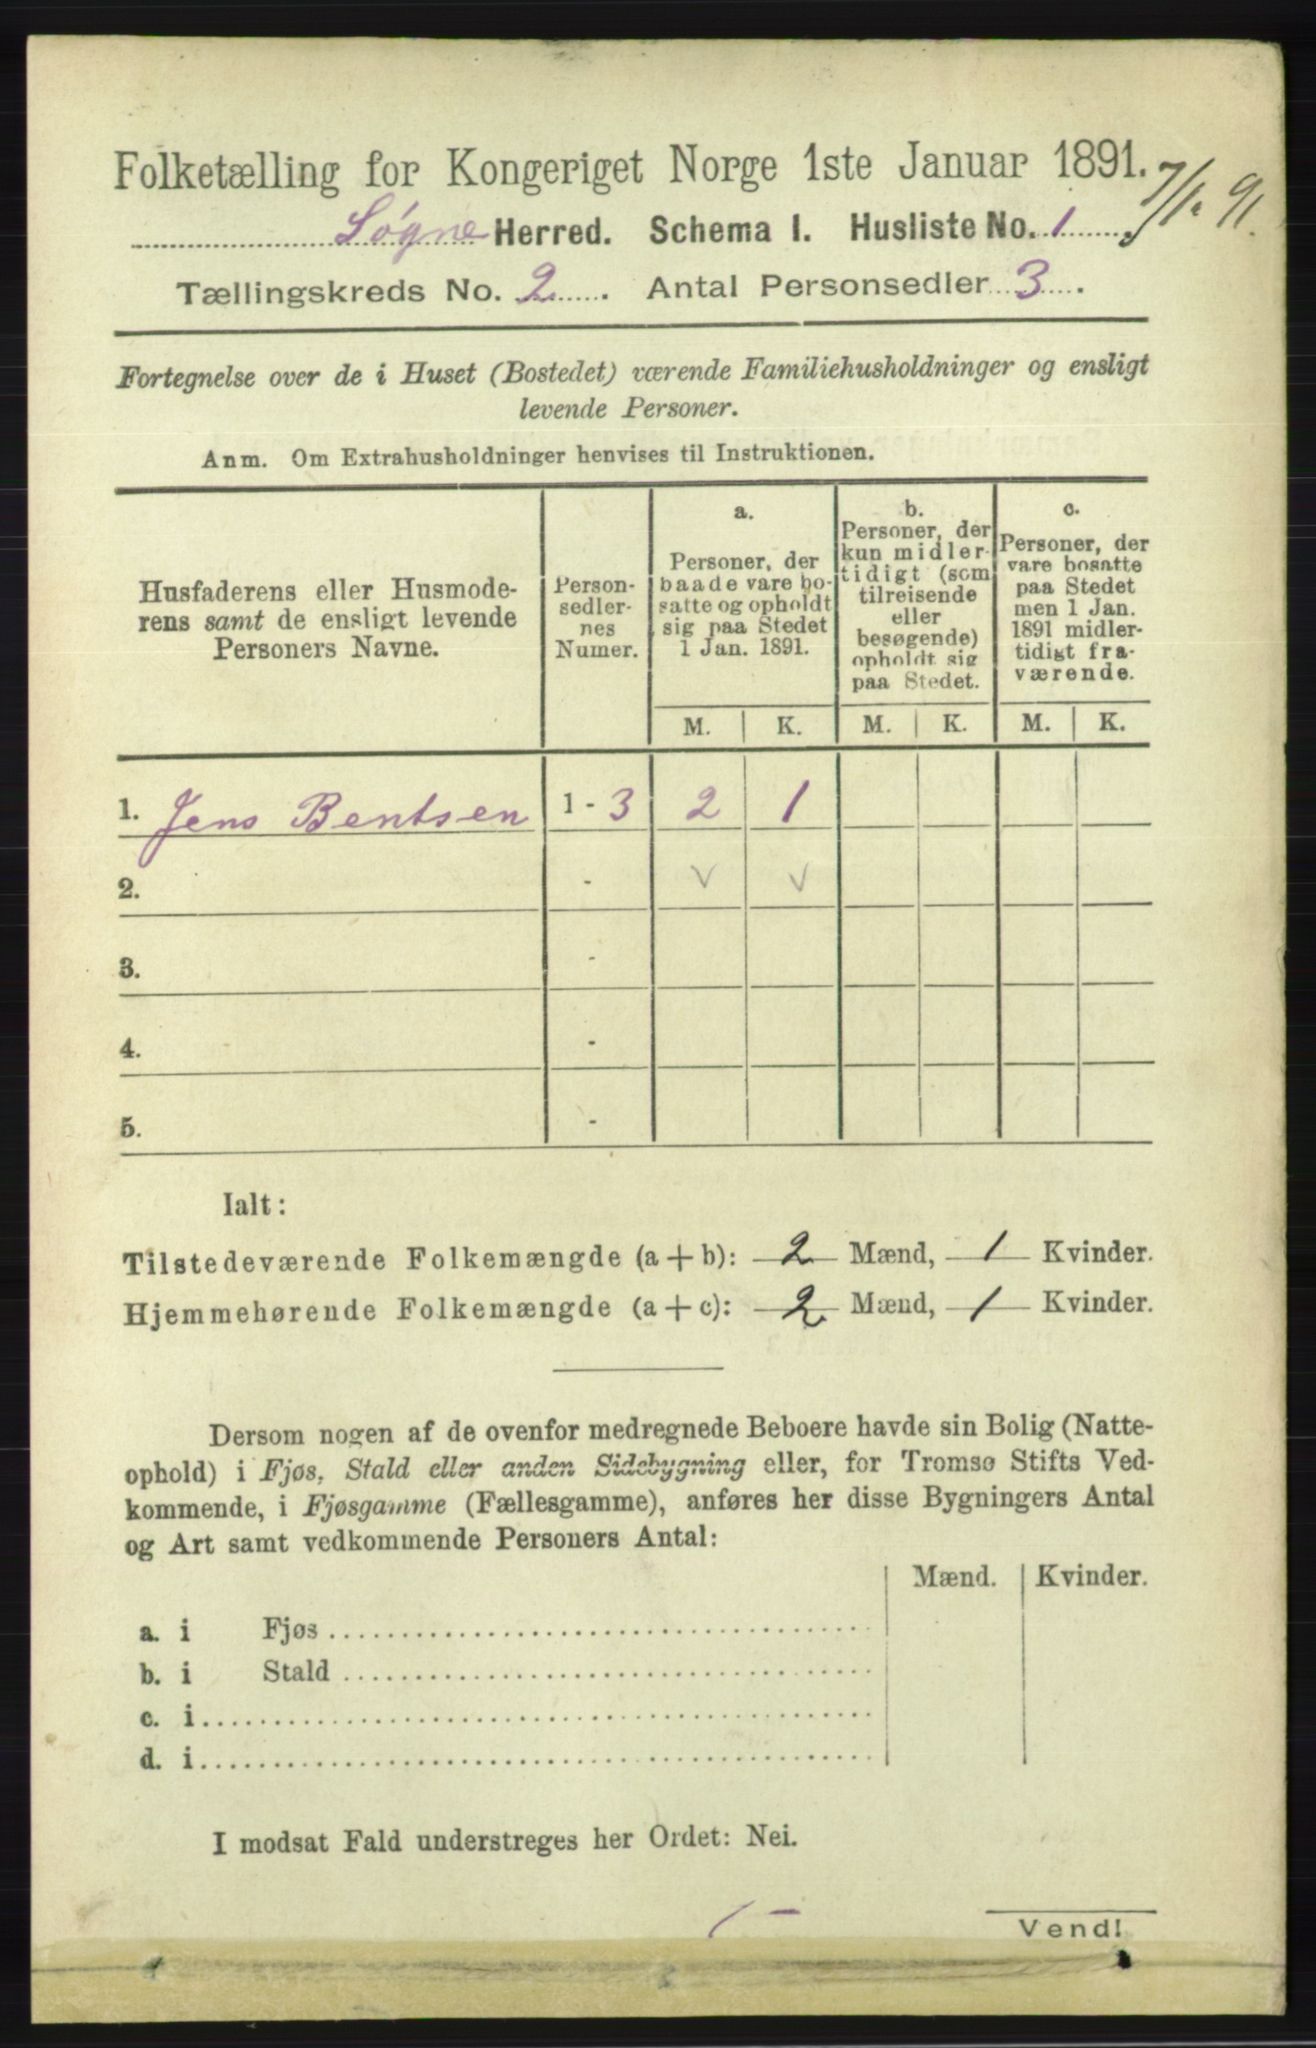 Folketælling for Kongeriget Norge 1ste Januar 1891.
7/1. 91.
Søgne Herred. Schema I. Husliste No. 1
Tællingskreds No. 2. Antal Personsedler 3.
Fortegnelse over de i Huset (Bostedet) værende Familiehusholdninger og ensligt
levende Personer.
Anm. Om Extrahusholdninger henvises til Instruktionen.
Husfaderens eller Husmode-
rens samt de ensligt levende
Personers Navne.
Person-
sedler-
nes
Numer.
a.
Personer, der
baade vare bo-
satte og opholdt
sig paa Stedet
1 Jan. 1891.
b.
Personer, der
kun midler-
tidigt (som
tilreisende
eller
besøgende)
opholdt sig
paa Stedet.
c.
Personer, der
vare bosatte
paa Stedet
men 1 Jan.
1891 midler-
tidigt fra-
værende.
M. K. M. K. M. K.
1. Jens Bentsen 1 - 3 2 1
2. -
3. -
4. -
5. -
Ialt:
Tilstedeværende Folkemængde (a + b): 2 Mænd, 1 Kvinder.
Hjemmehørende Folkemængde (a + c): 2 Mænd, 1 Kvinder.
Dersom nogen af de ovenfor medregnede Beboere havde sin Bolig (Natte-
ophold) i Fjøs, Stald eller anden Sidebygning eller, for Tromsø Stifts Ved-
kommende, i Fjøsgamme (Fællesgamme), anføres her disse Bygningers Antal
og Art samt vedkommende Personers Antal:
Mænd. Kvinder.
a. i Fjøs
b. i Stald
c. i
d. i
I modsat Fald understreges her Ordet: Nei.
Vend!